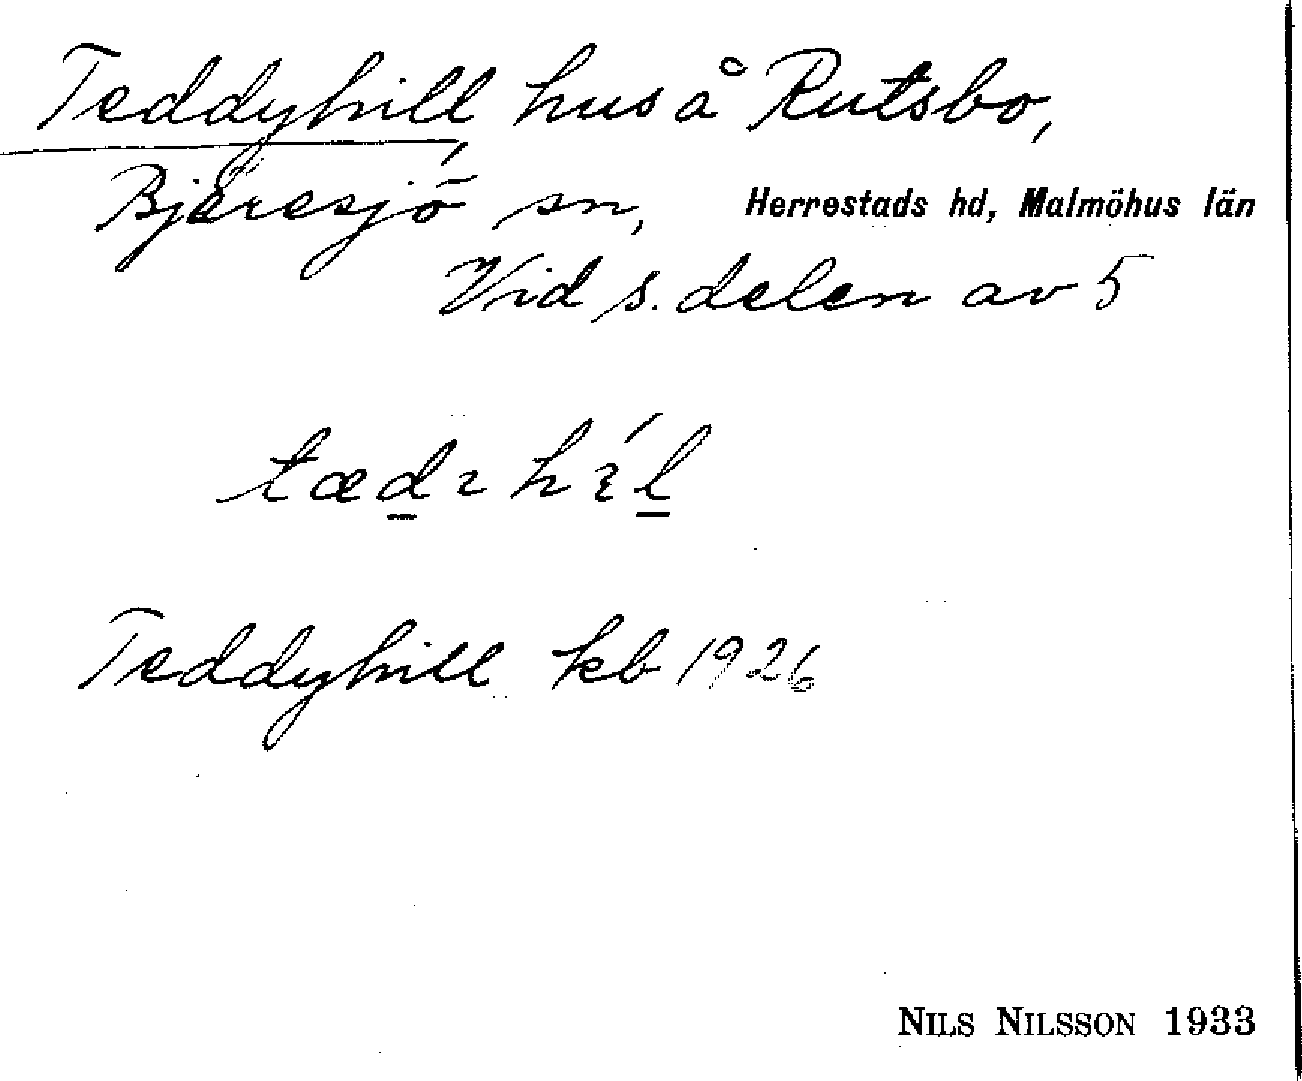 Teddyhill, hus å Rutsbo,
Bjäresjö sn, Herrestads hd, Malmöhus län
Vid s. delen av 5
Teddyhill kb 1926
NILS NILSSON 1933